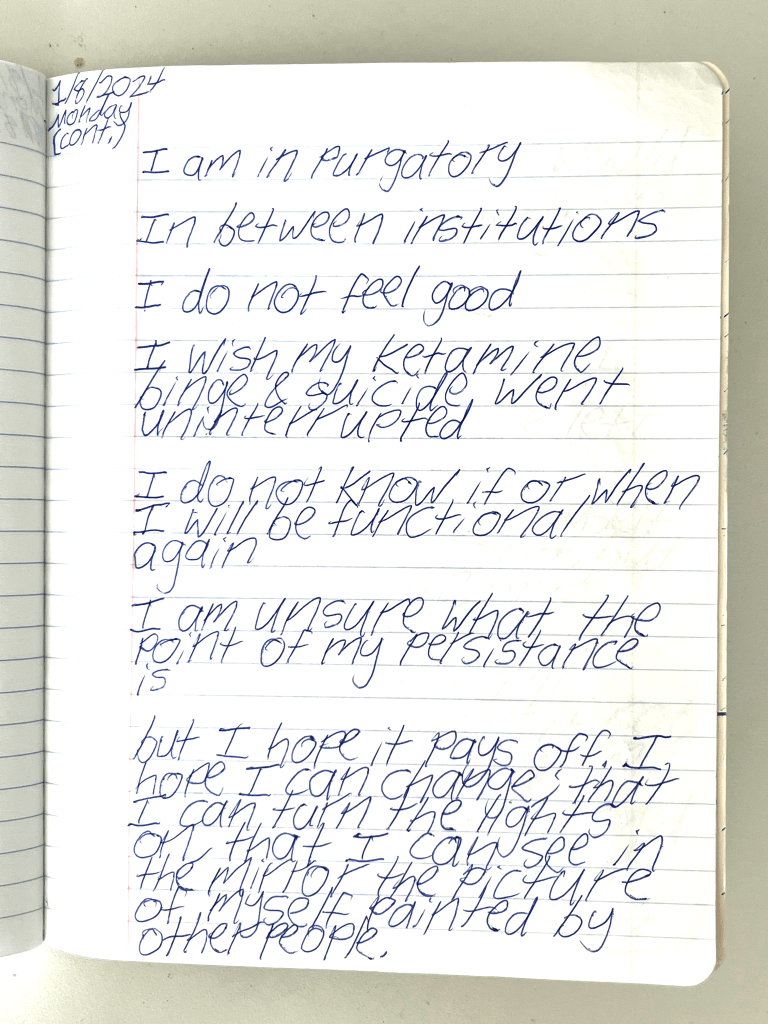 1/8/2024
Monday
(cont.)
I am in purgatory
In between institutions
I do not feel good
I wish my ketamine
binge & suicide went
uninterrupted
I do not know if or when
I will be functional
again
I am unsure what the
point of my persistance
is
but I hope it pays off. I
hope I can change, that
I can turn the lights
on, that I can see in
the mirror the picture
of myself painted by
other people.